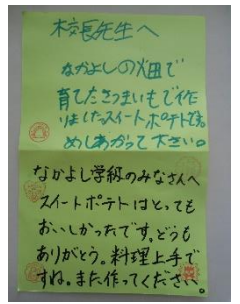 校長先生へ
なかよしの畑で
育てたさつまいもで作
りましたスイートポテトです。
めしあがって下さい。
なかよし学級のみなさんへ
スイートポテトはとっても
おいしかったです。どうも
ありがとう。料理上手で
すね。また作ってください